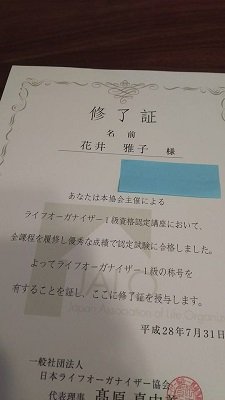 修了証
名前
花井 雅子 様
あなたは本協会主催による
ライフオーガナイザー1級資格認定講座において、
全課程を履修し優秀な成績で認定試験に合格しました。
よってライフオーガナイザー1級の称号を
有することを証し、ここに修了証を授与します。
Japan Association of Life Organizers
平成28年7月31日
一般社団法人
日本ライフオーガナイザー協会
代表理事 髙原 真由美